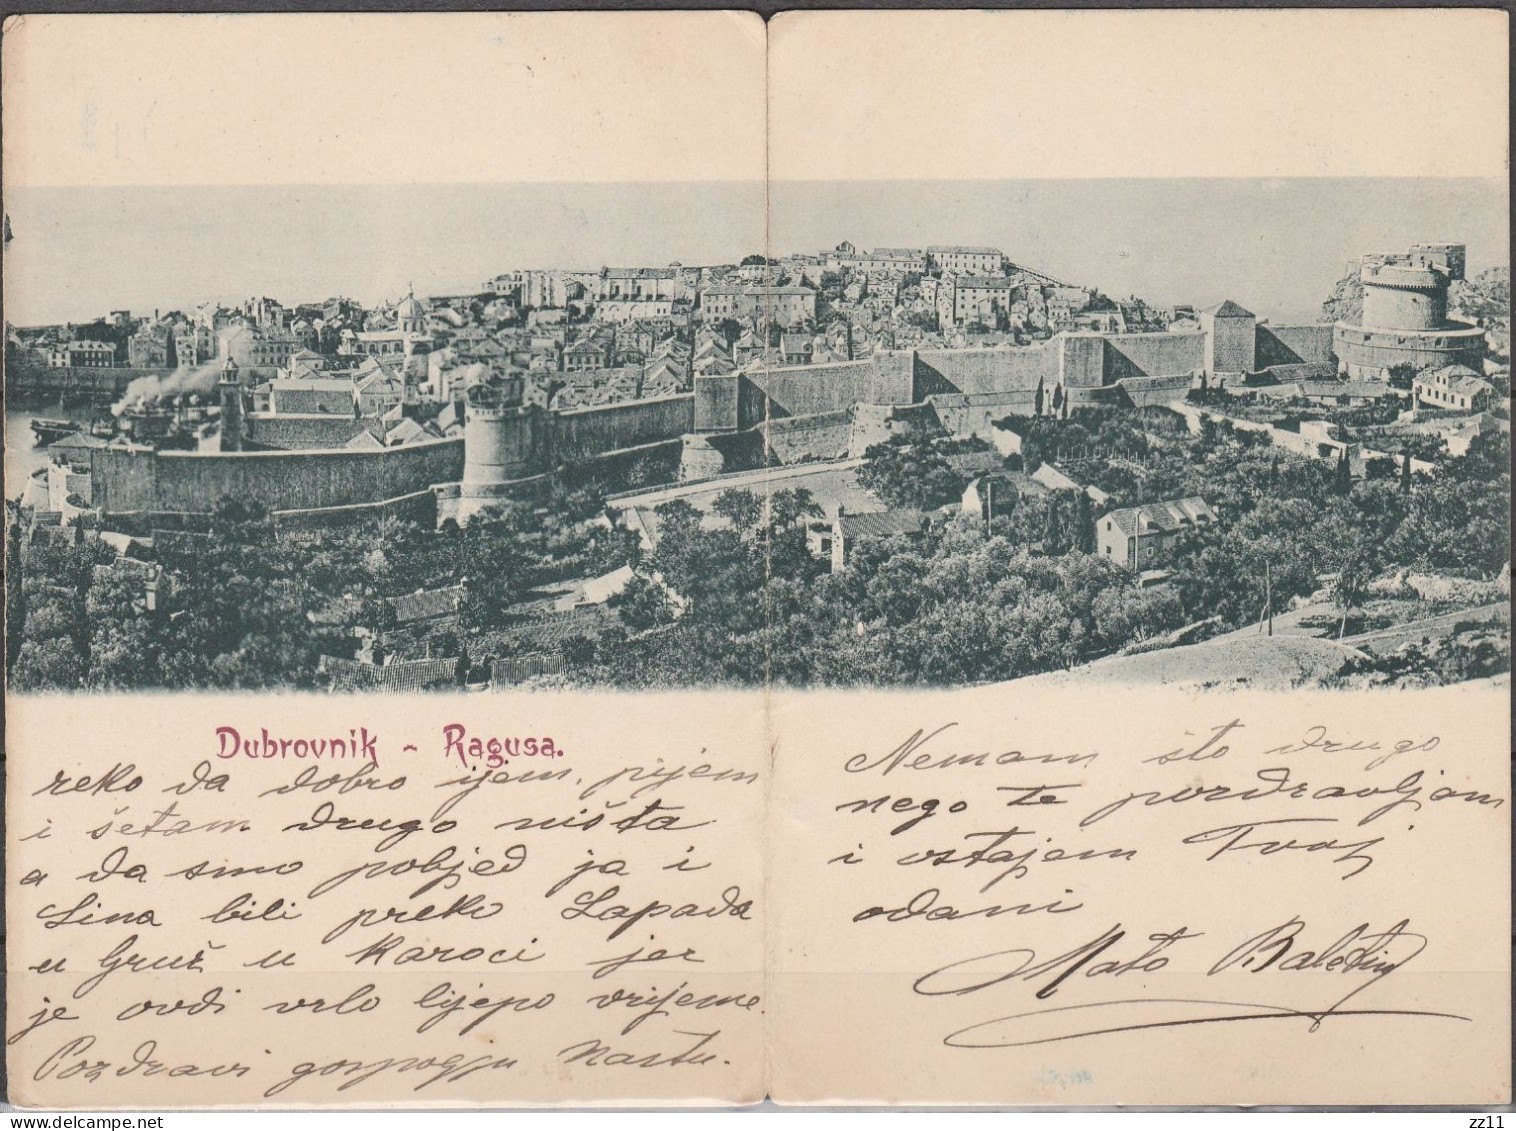 Dubrovnik - Ragusa.
reko da dobro ijem, pijem
i šetam drugo ništa
a da smo pobjed ja i
Lina bili preko Lapada
u Gruž u Karoci jer
je ovdi vrlo lijepo vrijeme.
Pozdravi gospogju Nastu.
Nemam što drugo
nego te pozdravljam
i ostajem Tvoj
odani
Mato Baletin
zz11
delcampe.net